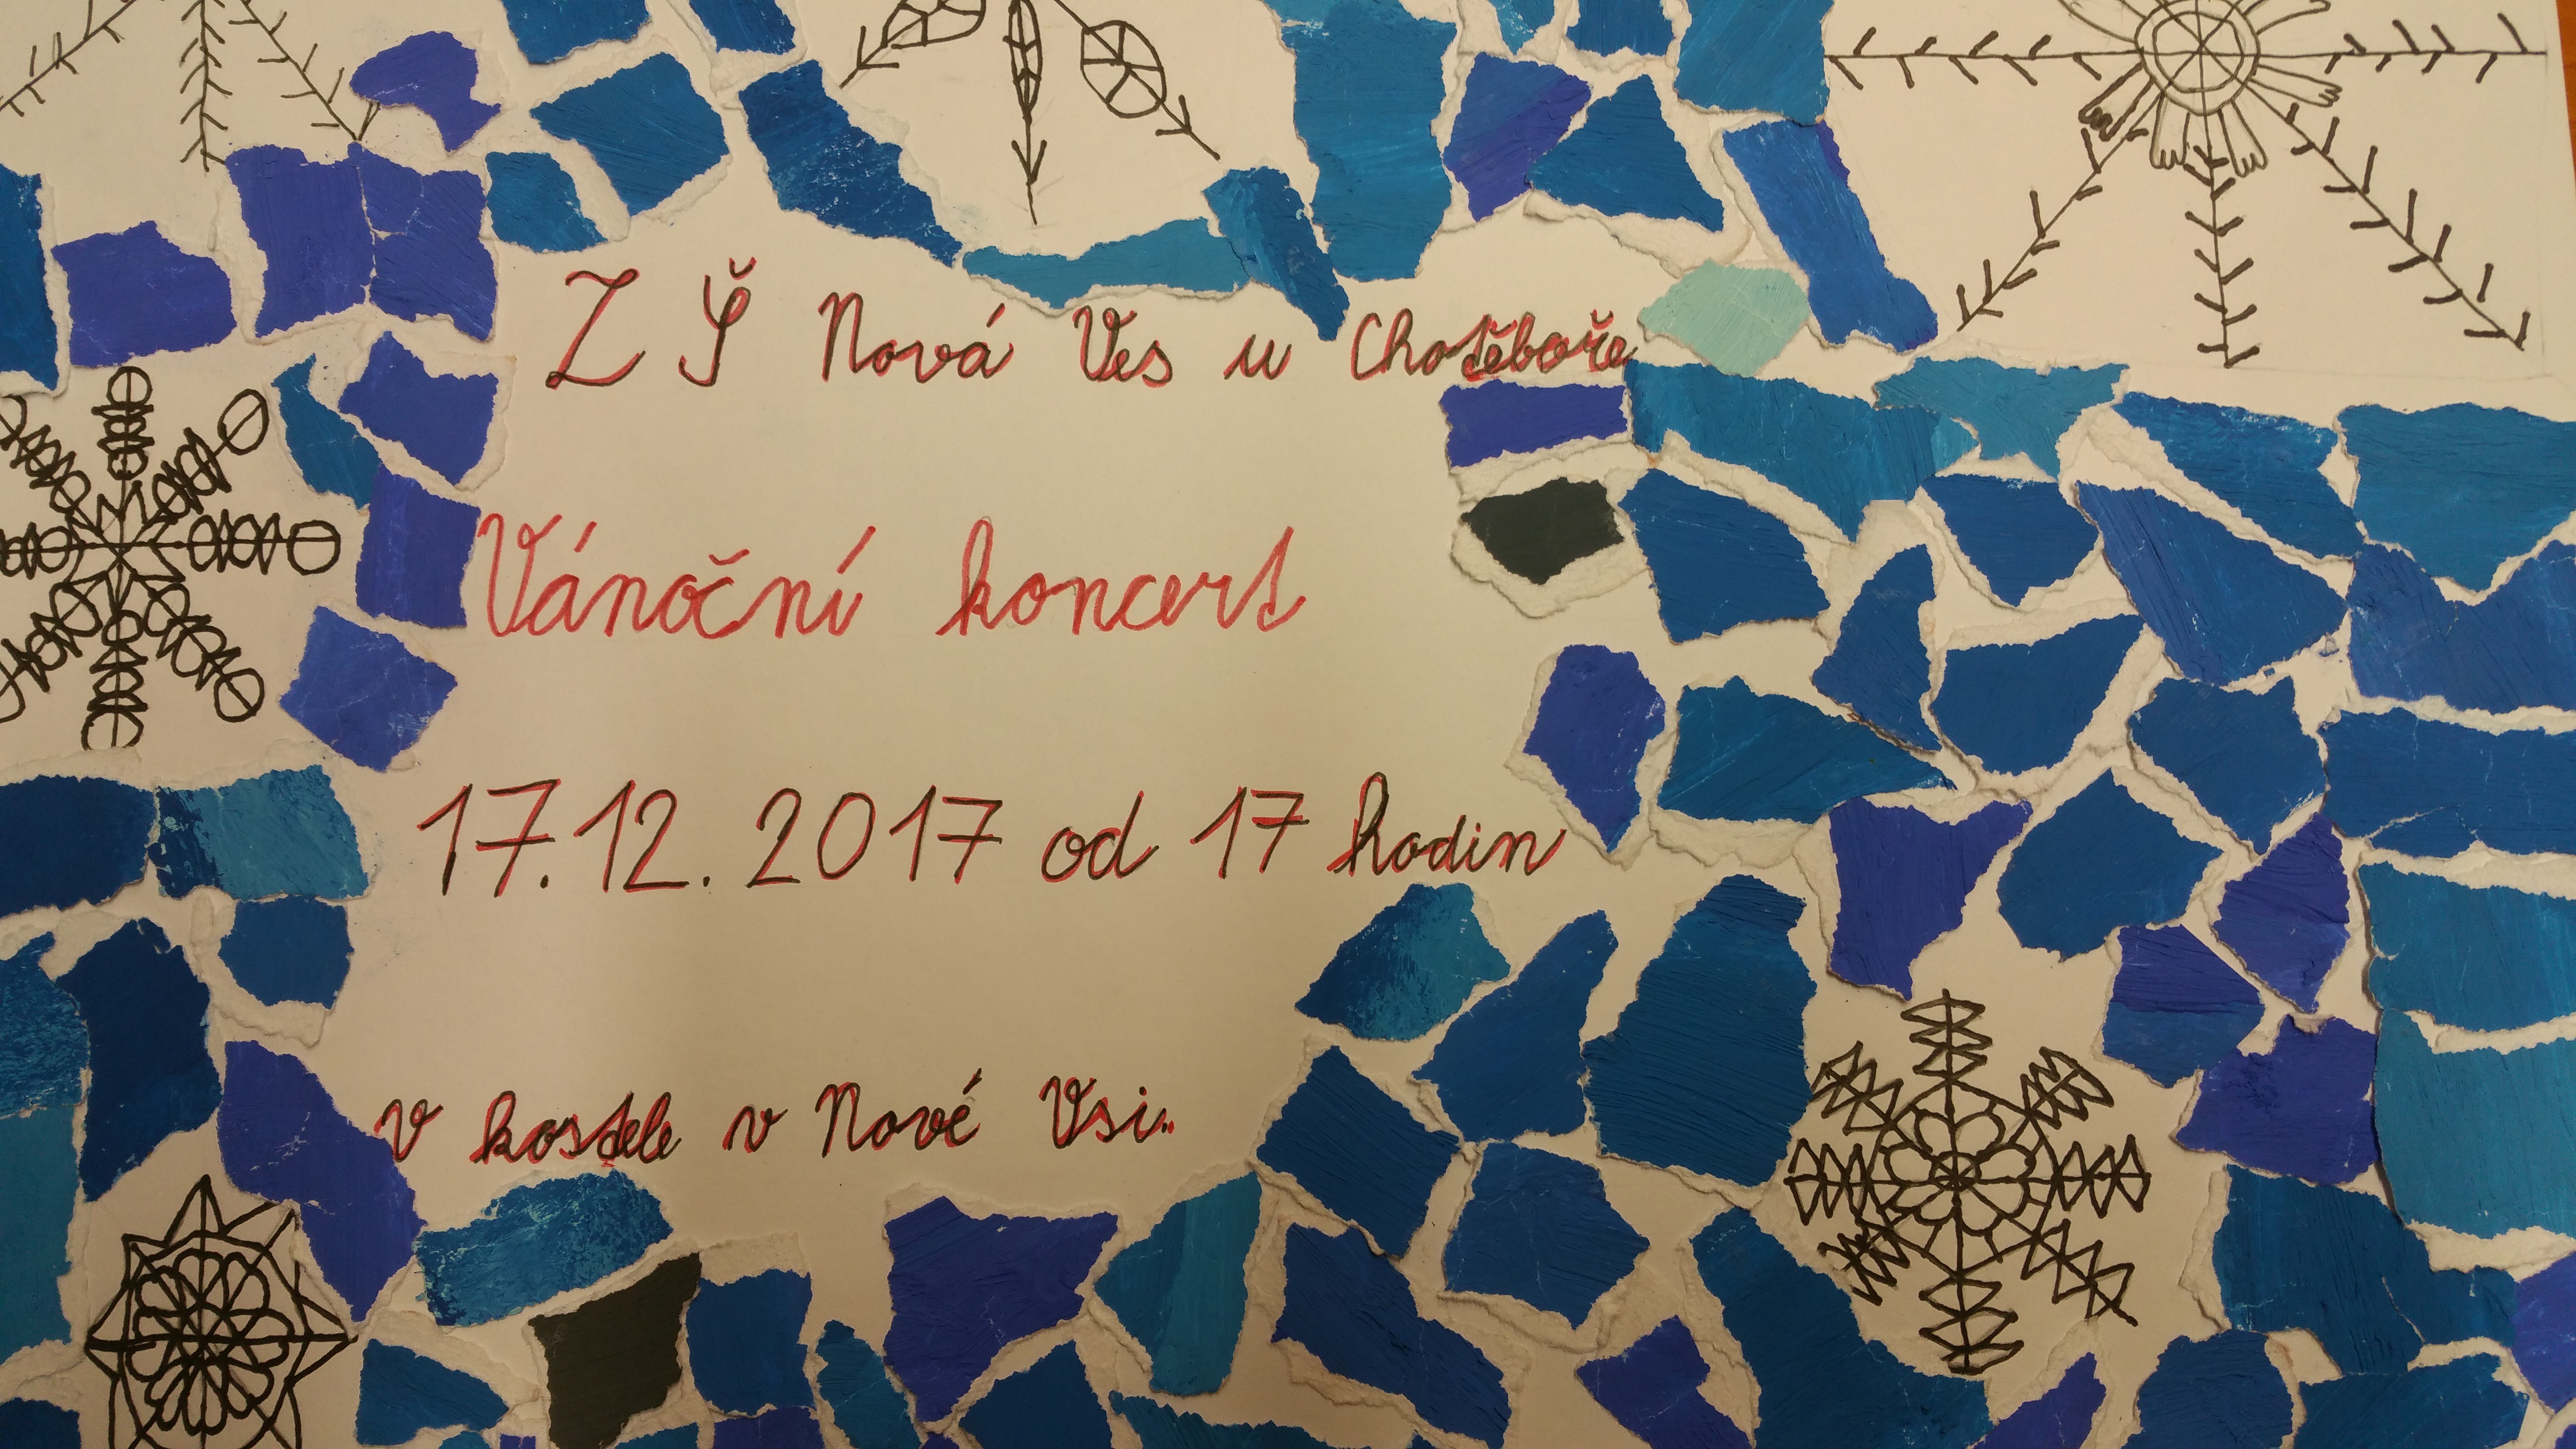 ZŠ Nová Ves u Chotěboře
Vánoční koncert
17.12.2017 od 17 hodin
v kostele v Nové Vsi.